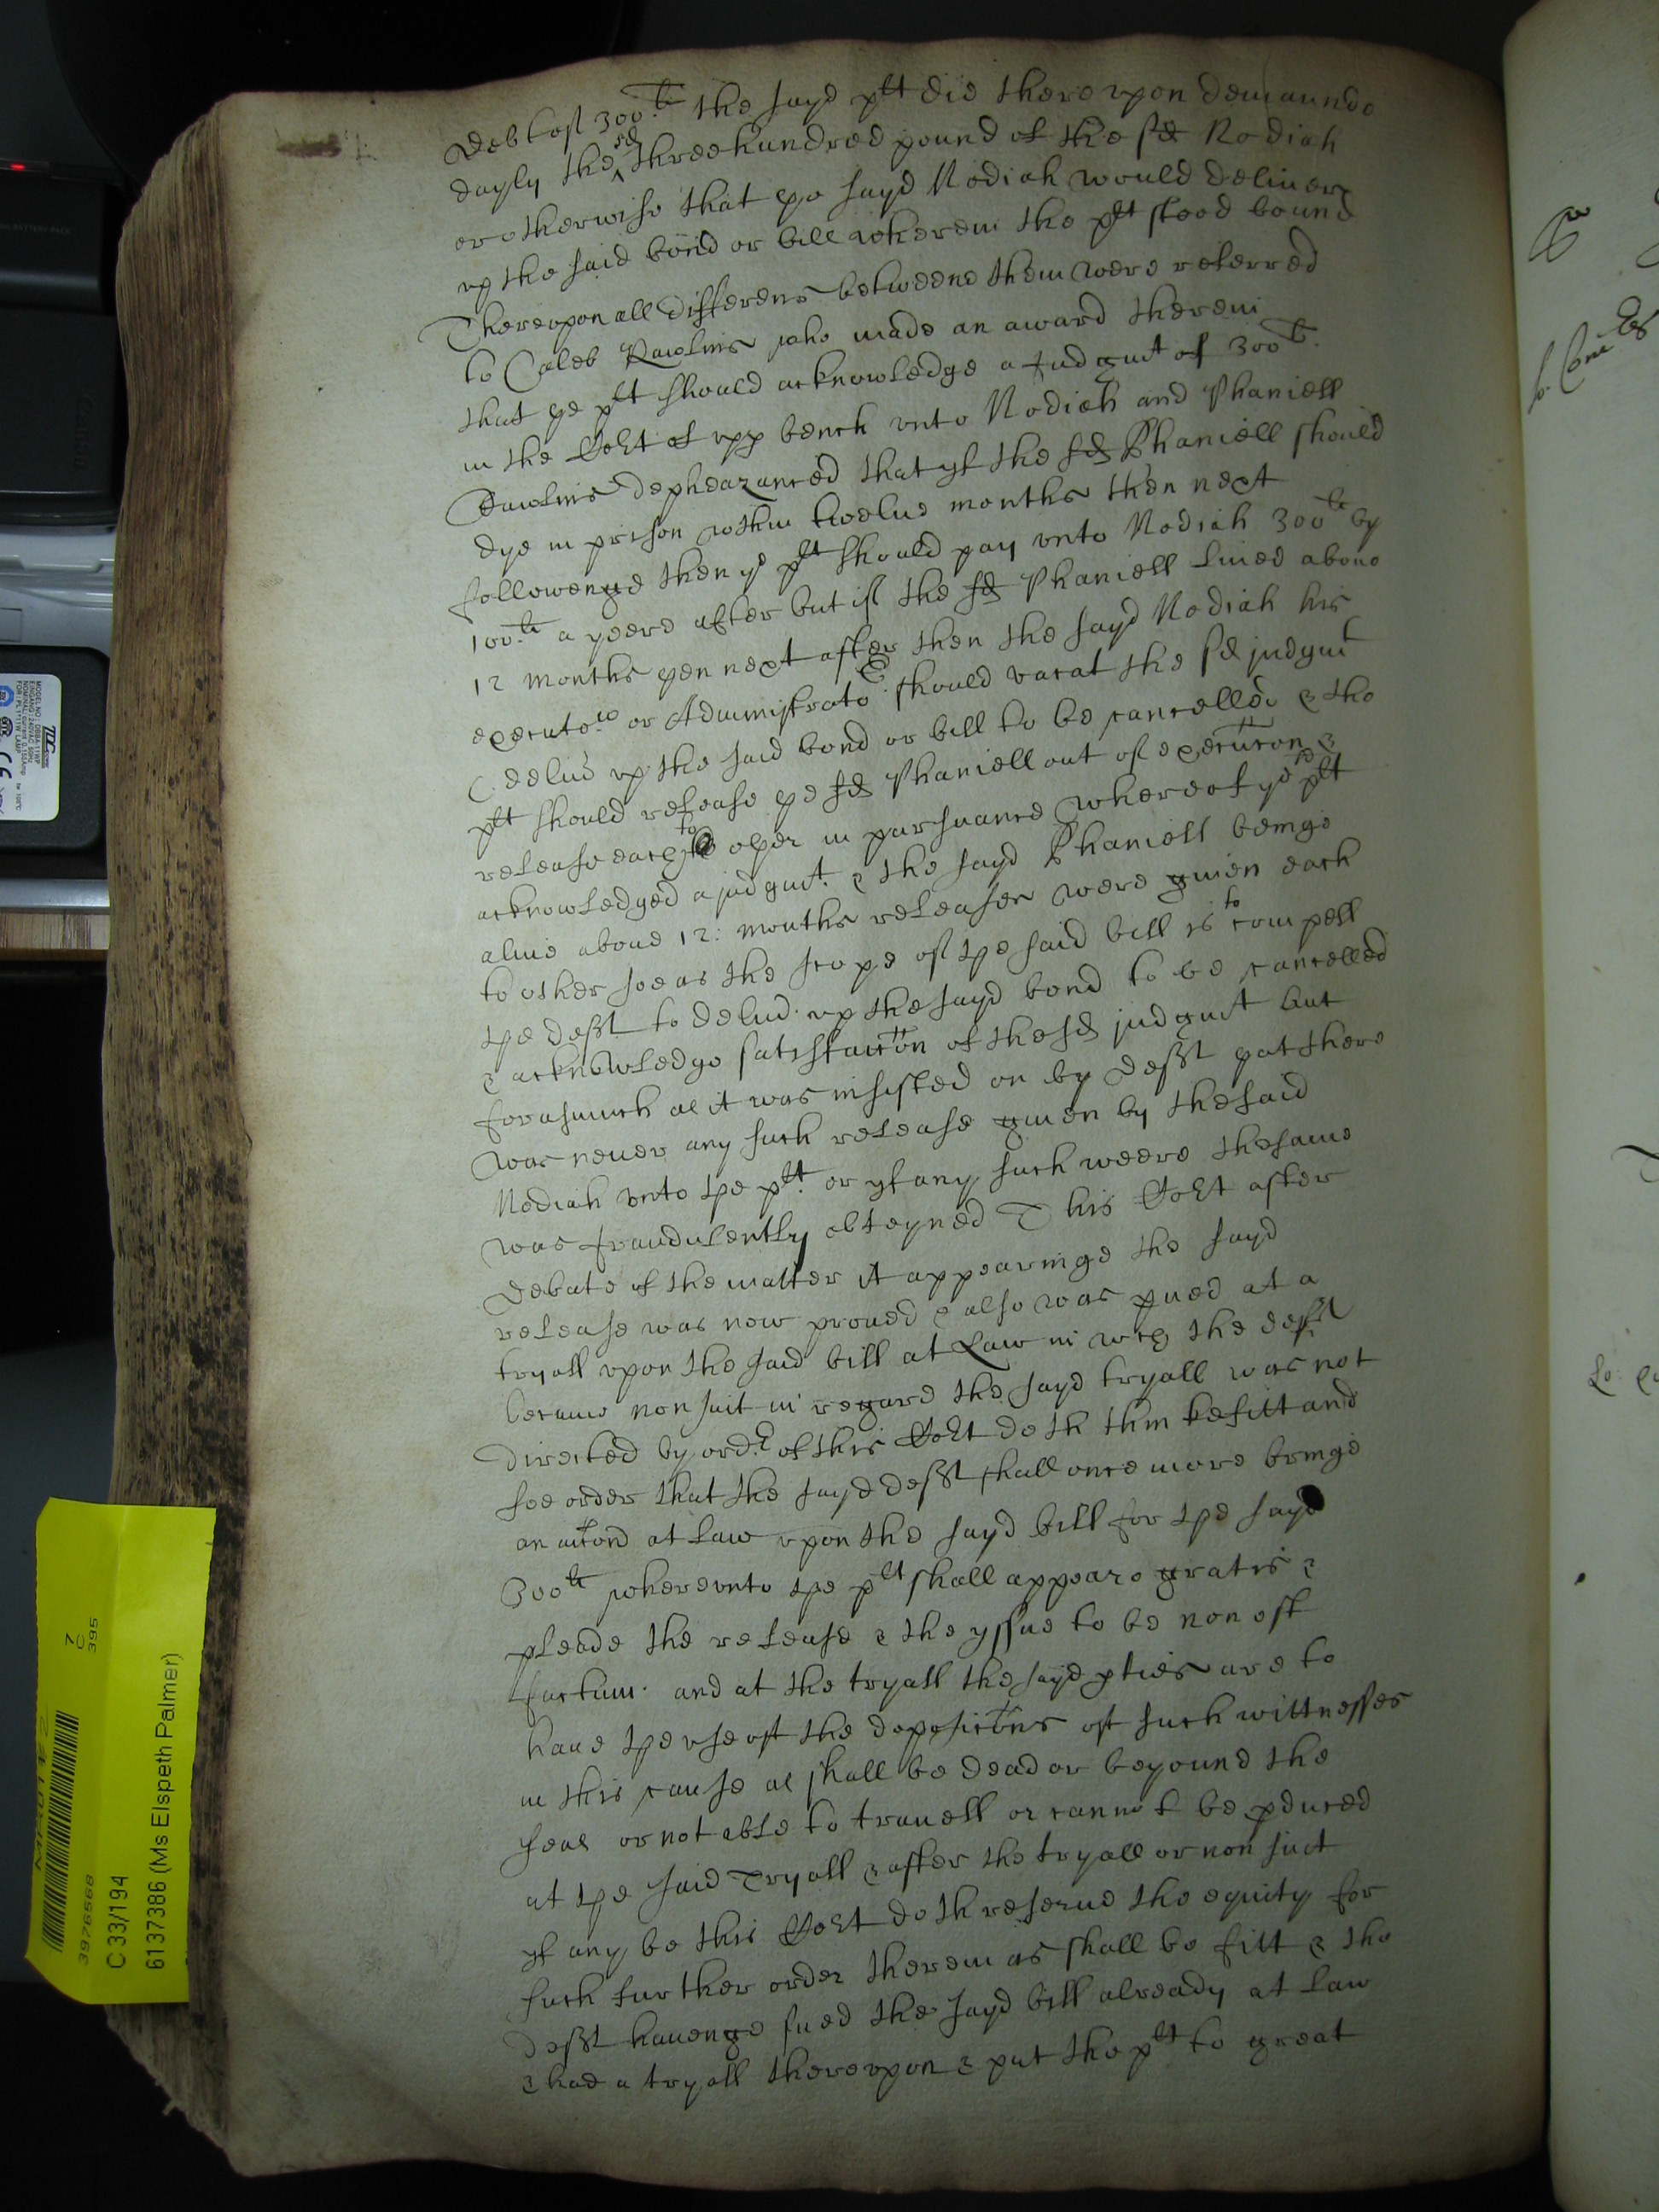 debt of 300li the sayd plt did there vpon demaunde
dayly the sd three hundred pound of the sd Nodiah
or otherwise that ye sayd Nodiah would deliver
vp the said bond or bill wherein the plt stood bound
Therevpon all differens betweene them were referred
to Caleb Rawlins who made an award therein
that ye plt should acknowledge a Judgmt of 300li
in the Cort of vpp bench vnto Nodiah and Phaniell
Rawlins depheazanced that yf the sd Phaniell should
dye in prison wthin twelue months then next
followenge then ye plt should pay vnto Nodiah 300li by
100li a yeere after but if the sd Phaniell liued aboue
12 months yen next after then the sayd Nodiah his
executors or Administrators should vacat the sd judgmt
& deliu vp the said bond or bill to be cancelled & the
plt should release ye sd Phaniell out of execution &
release each to oyer in pursuance whereof ye sd plt
acknowledged a judgmt. & the sayd Phaniell beinge
aliue aboue 12: months releases were giuen each
to other soe as the scope of the said bill is to compell
the deft to deliu vp the sayd bond to be cancelled
& acknowledge satisfaction of the sd judgmt but
forasmuch as it was insisted on by deft yat there
was neuer any such release giuen by the said
Nodiah vnto the plt. or yf any such weere the same
was fraudulently obteyned This Cort after
debate of the matter it appearinge the sayd
release was now proued & also was pued at a
tryall vpon the said bill at Law in wch the deft
became nonsuit in regard the sayd tryall was not
directed by order of this Cort doth thinke fitt and
soe order that the sayd deft shall once more bringe
an action at law vpon the sayd bill for the sayd
300li wherevnto the plt shall appeare gratis &
pleade the release & the yssue to be non est
factum. and at the tryall the sayd pties are to
haue the vse of the deposicons of such wittnesses
in this cause as shall be dead or beyound the
seas or not able to trauell or cannot be pduced
at the said Tryall & after the tryall or non suit
yf any be this Cort doth reserue the equity for
such further order therein as shall be fitt & the
deft hauenge sued the sayd bill already at law
& had a tryall therevpon & put the plt to great
MODEL NO: DSBA-11WP
C 33/194
6137386 (Ms Elspeth Palmer)
3976568
7
C
395